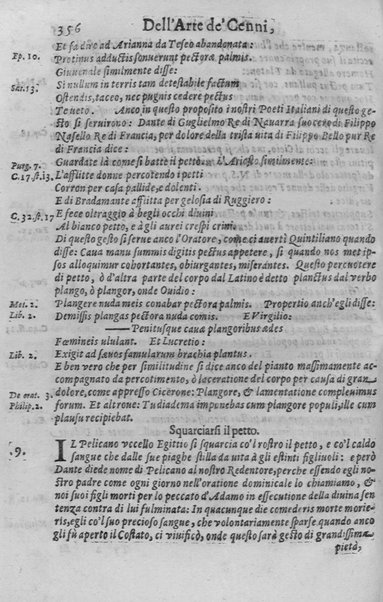 356 Dell'Arte de' Cenni,
Et fa divo ad Arianna da Teseo abandonata:
Ep. 10. Protinus adductis sonuerunt pectora palmis.
Giuuenale similmente disse:
Sat. 13. Si nullum in terris tam detestabile factum
Ostendis, taceo, nec pugnis cedere pectus
Te ueto. Anco in questo proposito i nostri Poeti Italiani di questo ge-
sto si seruirono: Dante di Guglielmo Re di Nauarra suocero di Filippo
Nasello Re di Francia, per dolore della trista uita di Filippo Bello pur Re
di Francia dice:
Purg. 7. Guardate là come si batte il petto. L'Ariosto similmente:
C. 17. st. 13. L'afflitte donne percotendo i petti
Corron per casa pallide, e dolenti.
E di Bradamante afflitta per gelosia di Ruggiero:
C. 32. st. 17 E fece oltraggio à begli occhi diuini
Al bianco petto, e à gli aurei crespi crini.
Di questo gesto si serue anco l'Oratore, come ci auertì Quintiliano quando
disse: Caua manu summis digitis pectus appetere, si quando nos met i-
psos alloquimur cohortantes, obiurgantes, miserantes. Questo percuotere
di petto, ò d'altra parte del corpo dal Latino è detto planctus dal verbo
plango, ò planger, onde Ouidio:
Met. 2. Plangere nuda meis conabar pectora palmis. Propertio anch'egli disse:
Lib. 2. Demissis plangas pectora nuda comis. E Virgilio:
—— Penitusque caua plangoribus ædes
Fœmineis ululant. Et Lucretio:
Lib. 2. Exigit ad sæuos famularum brachia plantus.
E ben vero che per similitudine si dice anco del pianto massimamente ac-
compagnato da percotimento, ò laceratione del corpo per causa di gran
De orat. 3. dolore, come appresso Cicerone: Plangore, & lamentatione compleuimus
Philip. 2. forum. Et altroue: Tu diadema imponebas cum plangore populi, ille cum
plausu recipiebat.
Squarciarsi il petto.
9. IL Pelicano vccello Egittio si squarcia co'l rostro il petto, e co'l caldo
sangue che dalle sue piaghe stilla da vita à gli estinti figliuoli: e però
Dante diede nome di Pelicano al nostro Redentore, perche essendo egli no-
stro padre come ogni giorno nell'oratione dominicale lo chiamiamo, &
noi suoi figli morti per lo peccato d'Adamo in essecutione della diuina sen-
tenza contra di lui fulminata: In quacunque die comederis morte morie-
ris, egli co'l suo precioso sangue, che volontariamente sparse quando anco
gli fù aperto il Costato, ci viuificò, onde questo sarà gesto di grandissima
pietà,